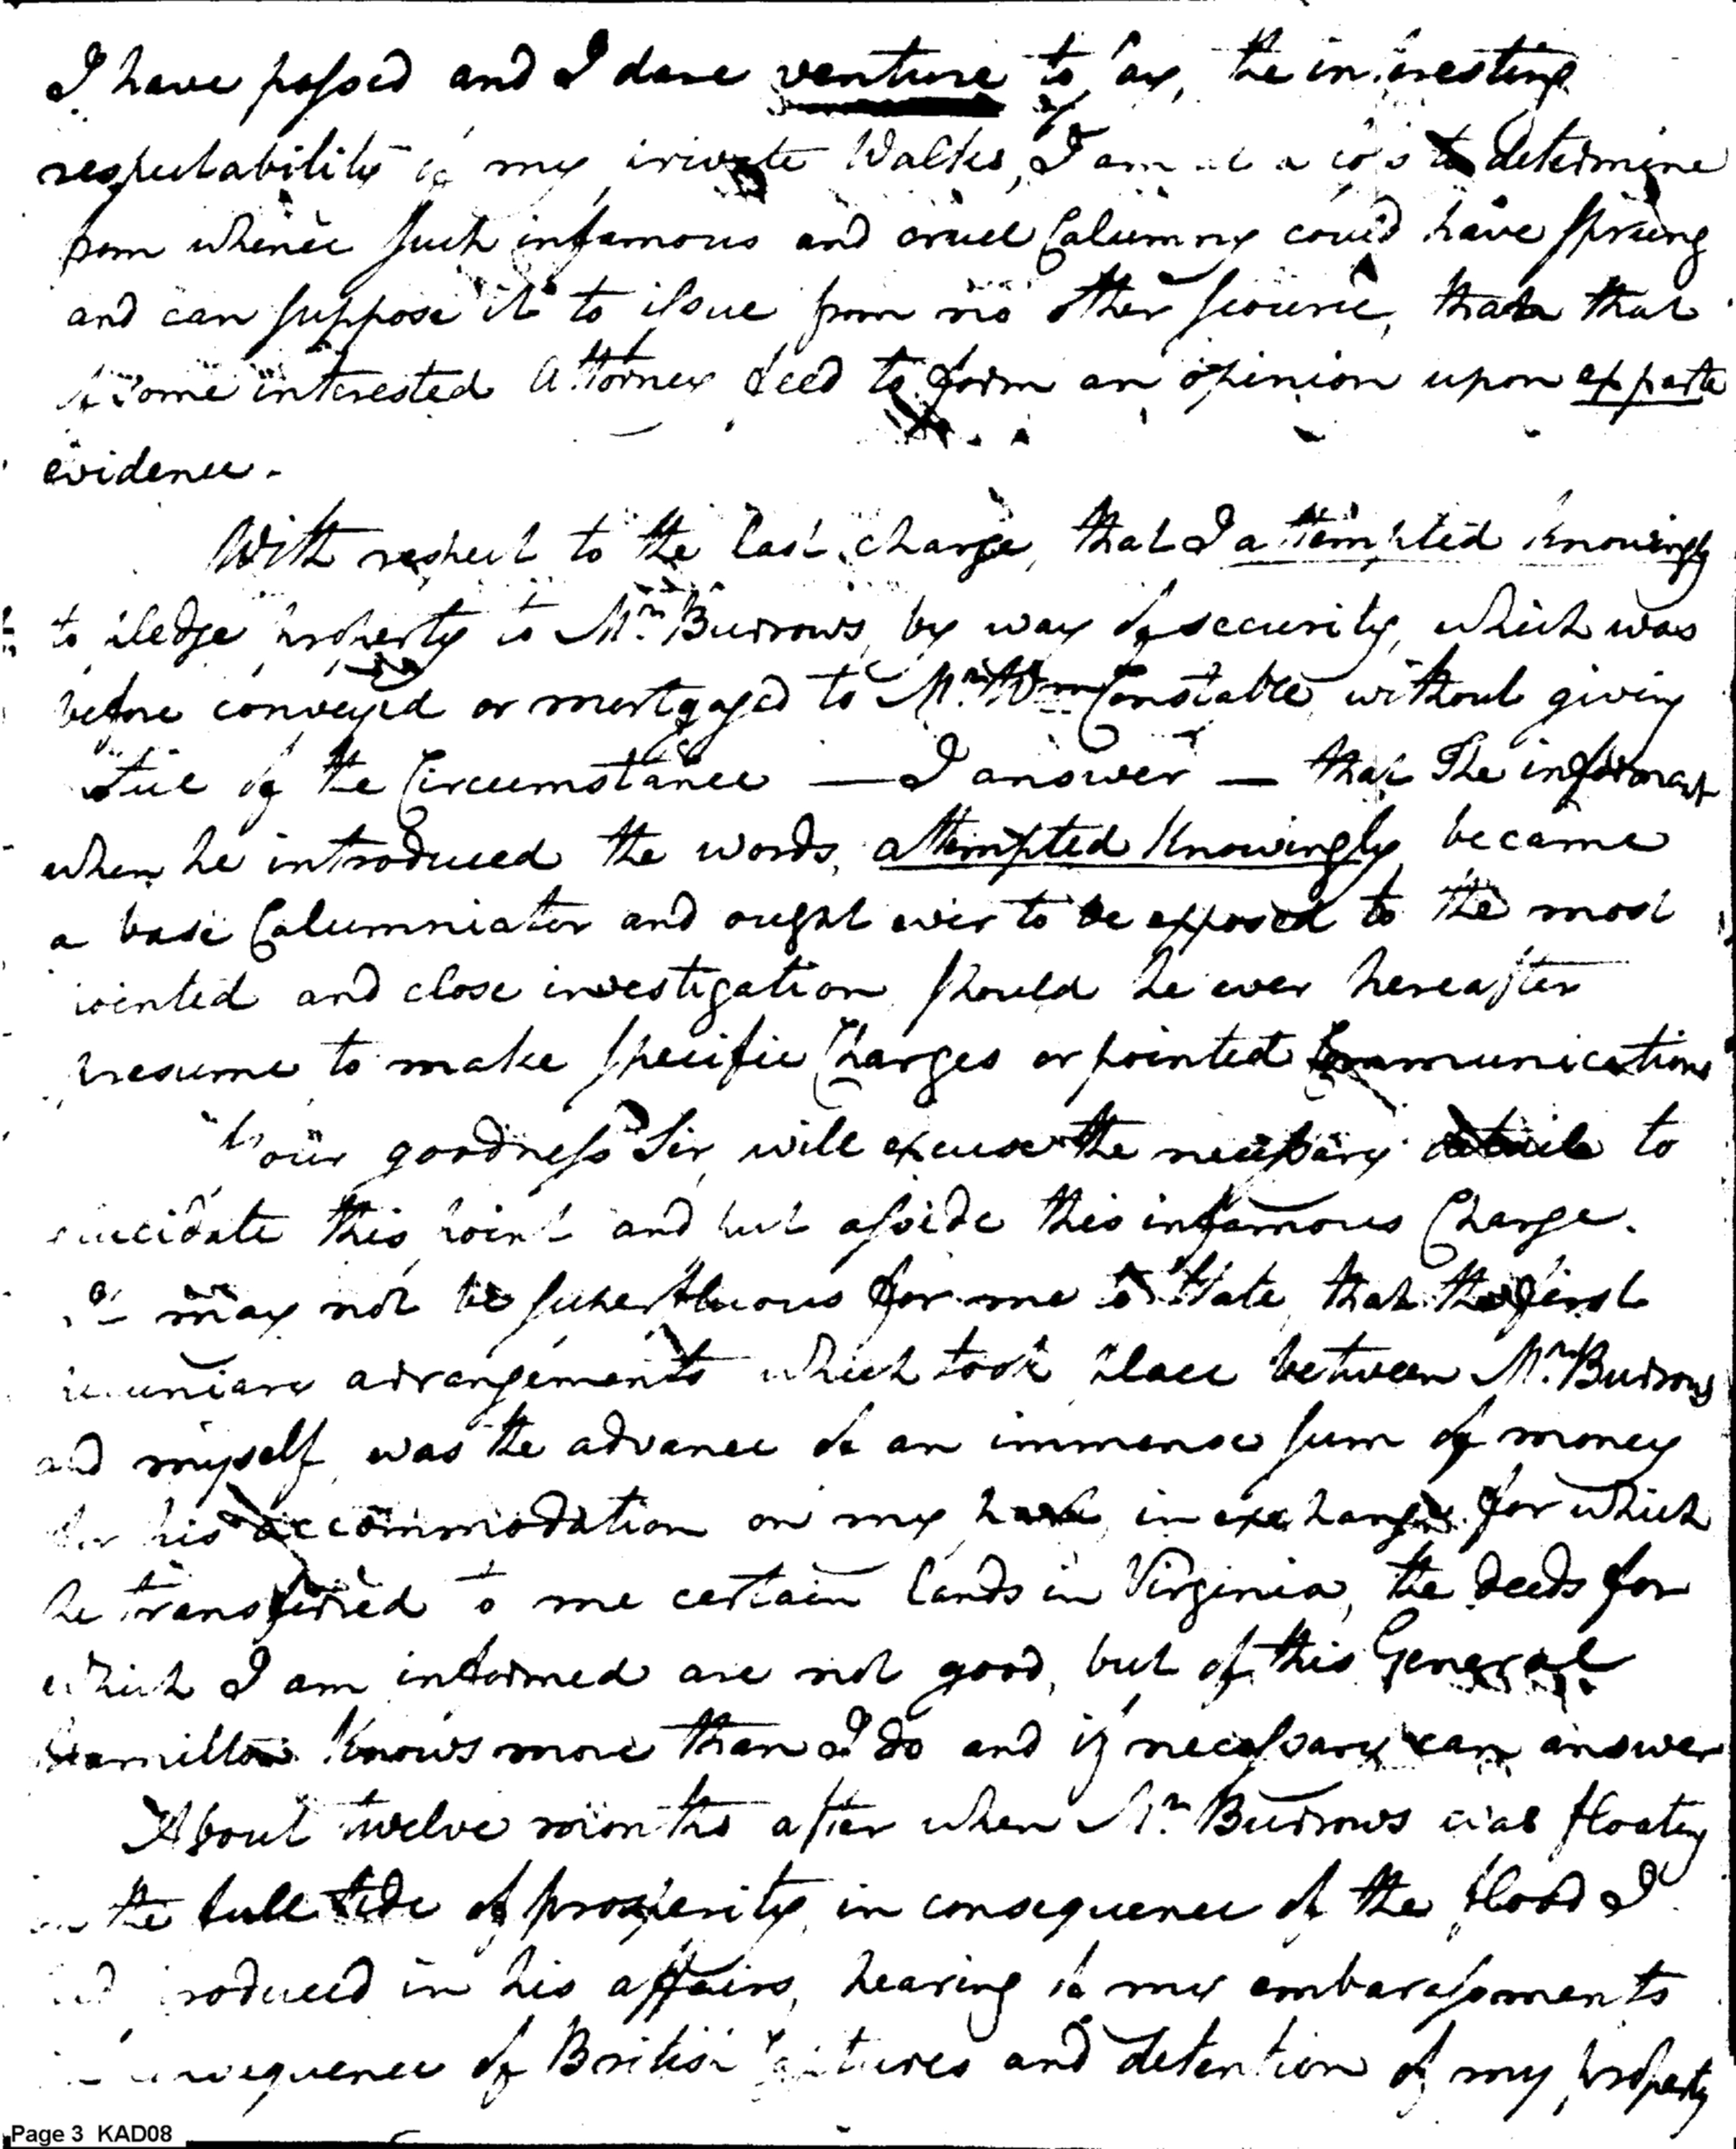 I have passed and I dare venture to say, the interesting
respectability of my private Walks, I am at a loss to determine
from whence such infamous and cruel Calumny could have sprung
and can suppose it to issue from no other source, than that
of some interested Attorney feed to form an opinion upon ex parte
evidence.-
With respect to the last charge, that I attempted knowingly
to pledge property to Mr. Burrows, by way of security, which was
before conveyed or mortgaged to Mr. Wm Constable, without giving
notice of the Circumstance — I answer — that The informant
when he introduced the words, attempted knowingly, became
a base Calumniator and ought ever to be exposed to the most
pointed and close investigation, should he ever hereafter
presume to make specific Charges or pointed Communications
Your goodness Sir, will excuse the necessary detail to
elucidate this point and put asside this infamous Charge.
It may not be superfluous for me to state, that the first
pecuniary arrangements which took place between Mr. Burrows
and myself, was the advance of an immense sum of money
for his accommodation on my part, in exchange for which
he transferred to me certain lands in Virginia, the deeds for
which I am informed are not good, but of this General
Hamilton knows more than I do and if necessary can answer
About twelve months after when Mr. Burrows was floating
on the full tide of prosperity, in consequence of the flood I
had produced in his affairs, hearing of my embarassments
in consequence of British Captures and detention of my property
Page 3 KAD08